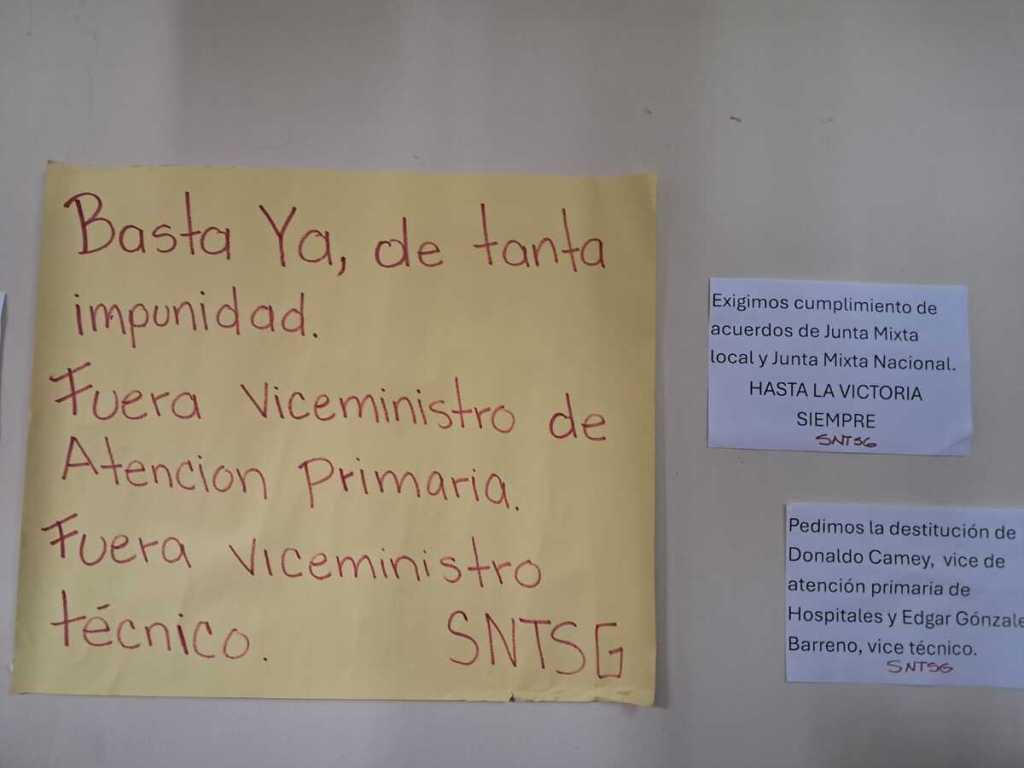 Basta Ya, de tanta
impunidad.
Fuera Viceministro de
Atencion Primaria.
Fuera Viceministro
técnico. SNTSG
Exigimos cumplimiento de
acuerdos de Junta Mixta
local y Junta Mixta Nacional.
HASTA LA VICTORIA
SIEMPRE
SNTSG
Pedimos la destitución de
Donaldo Camey, vice de
atención primaria de
Hospitales y Edgar Gónzale
Barreno, vice técnico.
SNTSG